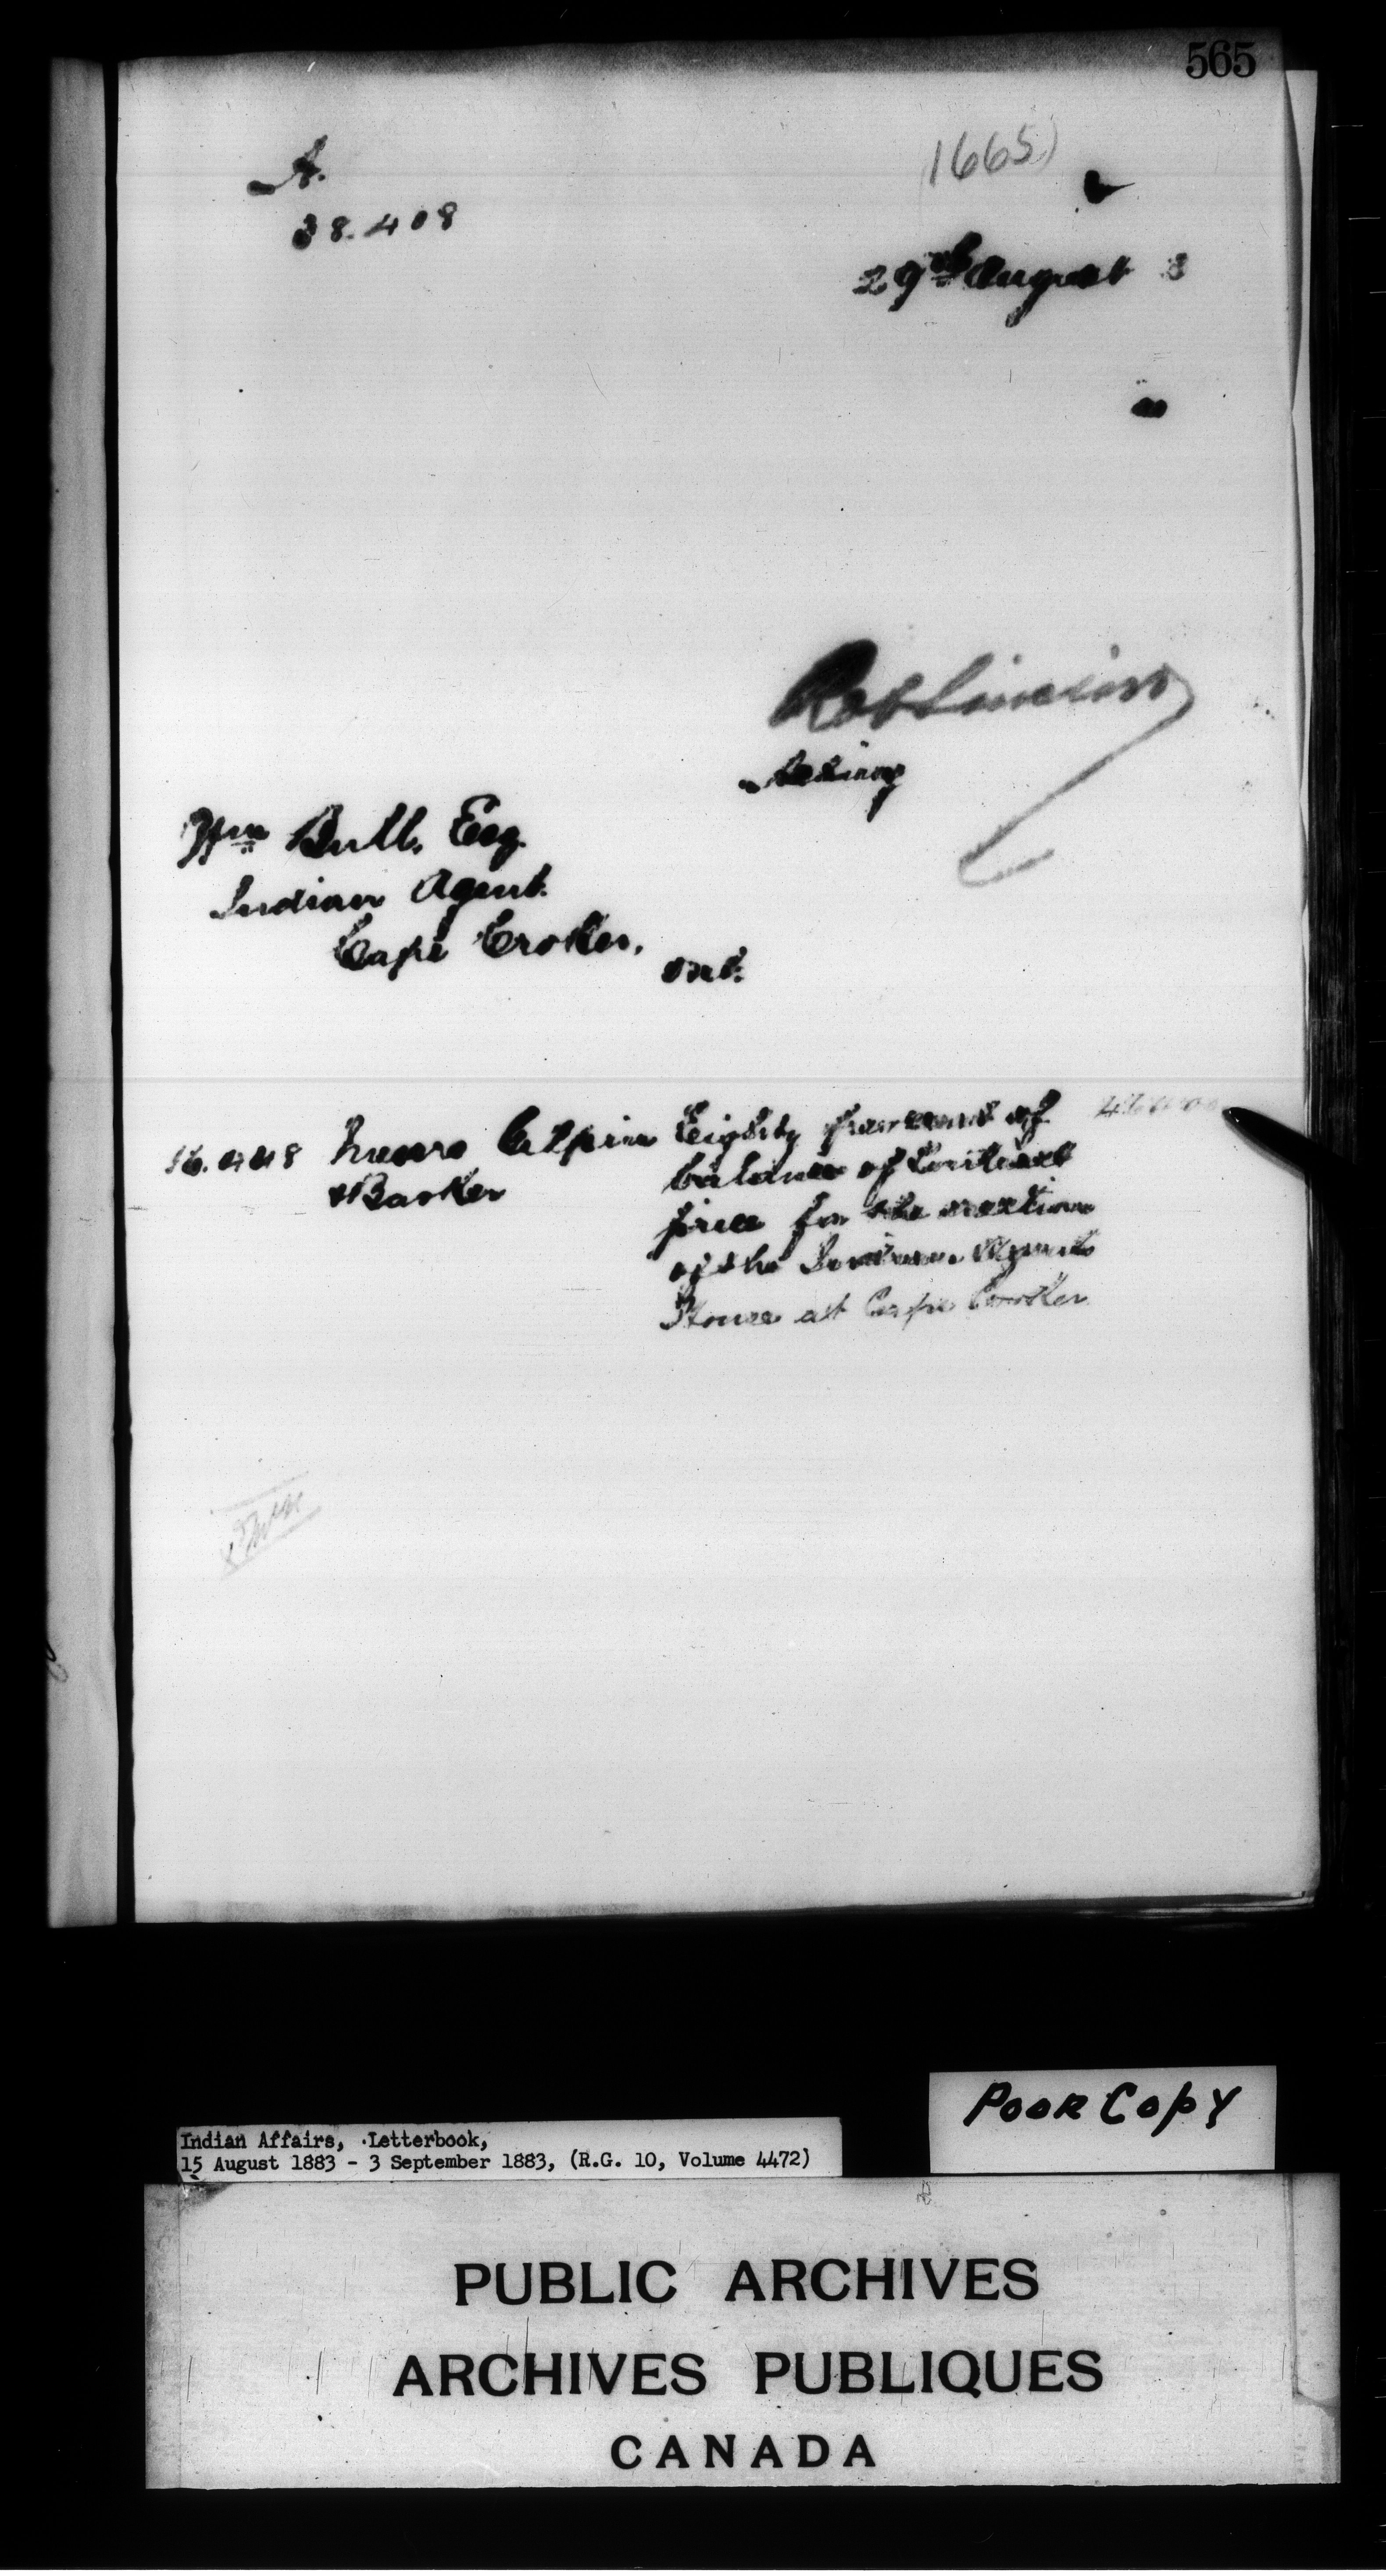 565
1665)
A.
38.408
29th August 3
Rob Sinclair
Acting
Wm Bull, Esq.
Indian Agent.
Cape Croker,
Ont.
Munro Alpin Eighty per cent of
& Barker balance of Contract
price for the erection
of the Indian Agents
House at Cape Croker
Poor Copy
Indian Affairs, Letterbook,
15 August 1883 - 3 September 1883, (R.G. 10, Volume 4472)
PUBLIC ARCHIVES
ARCHIVES PUBLIQUES
CANADA